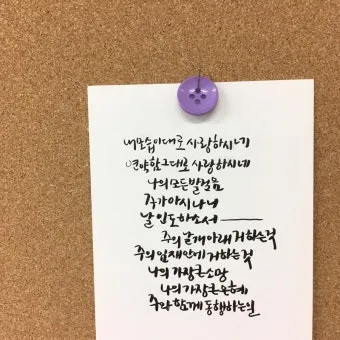 내모습이대로 사랑하시네
연약함그대로 사랑하시네
나의 모든발걸음
주가아시나니
날 인도하소서
주의 날개아래 거하는것
주의 임재안에 거하는것
나의 가장큰소망
나의 가장큰은혜
주와 함께 동행하는일